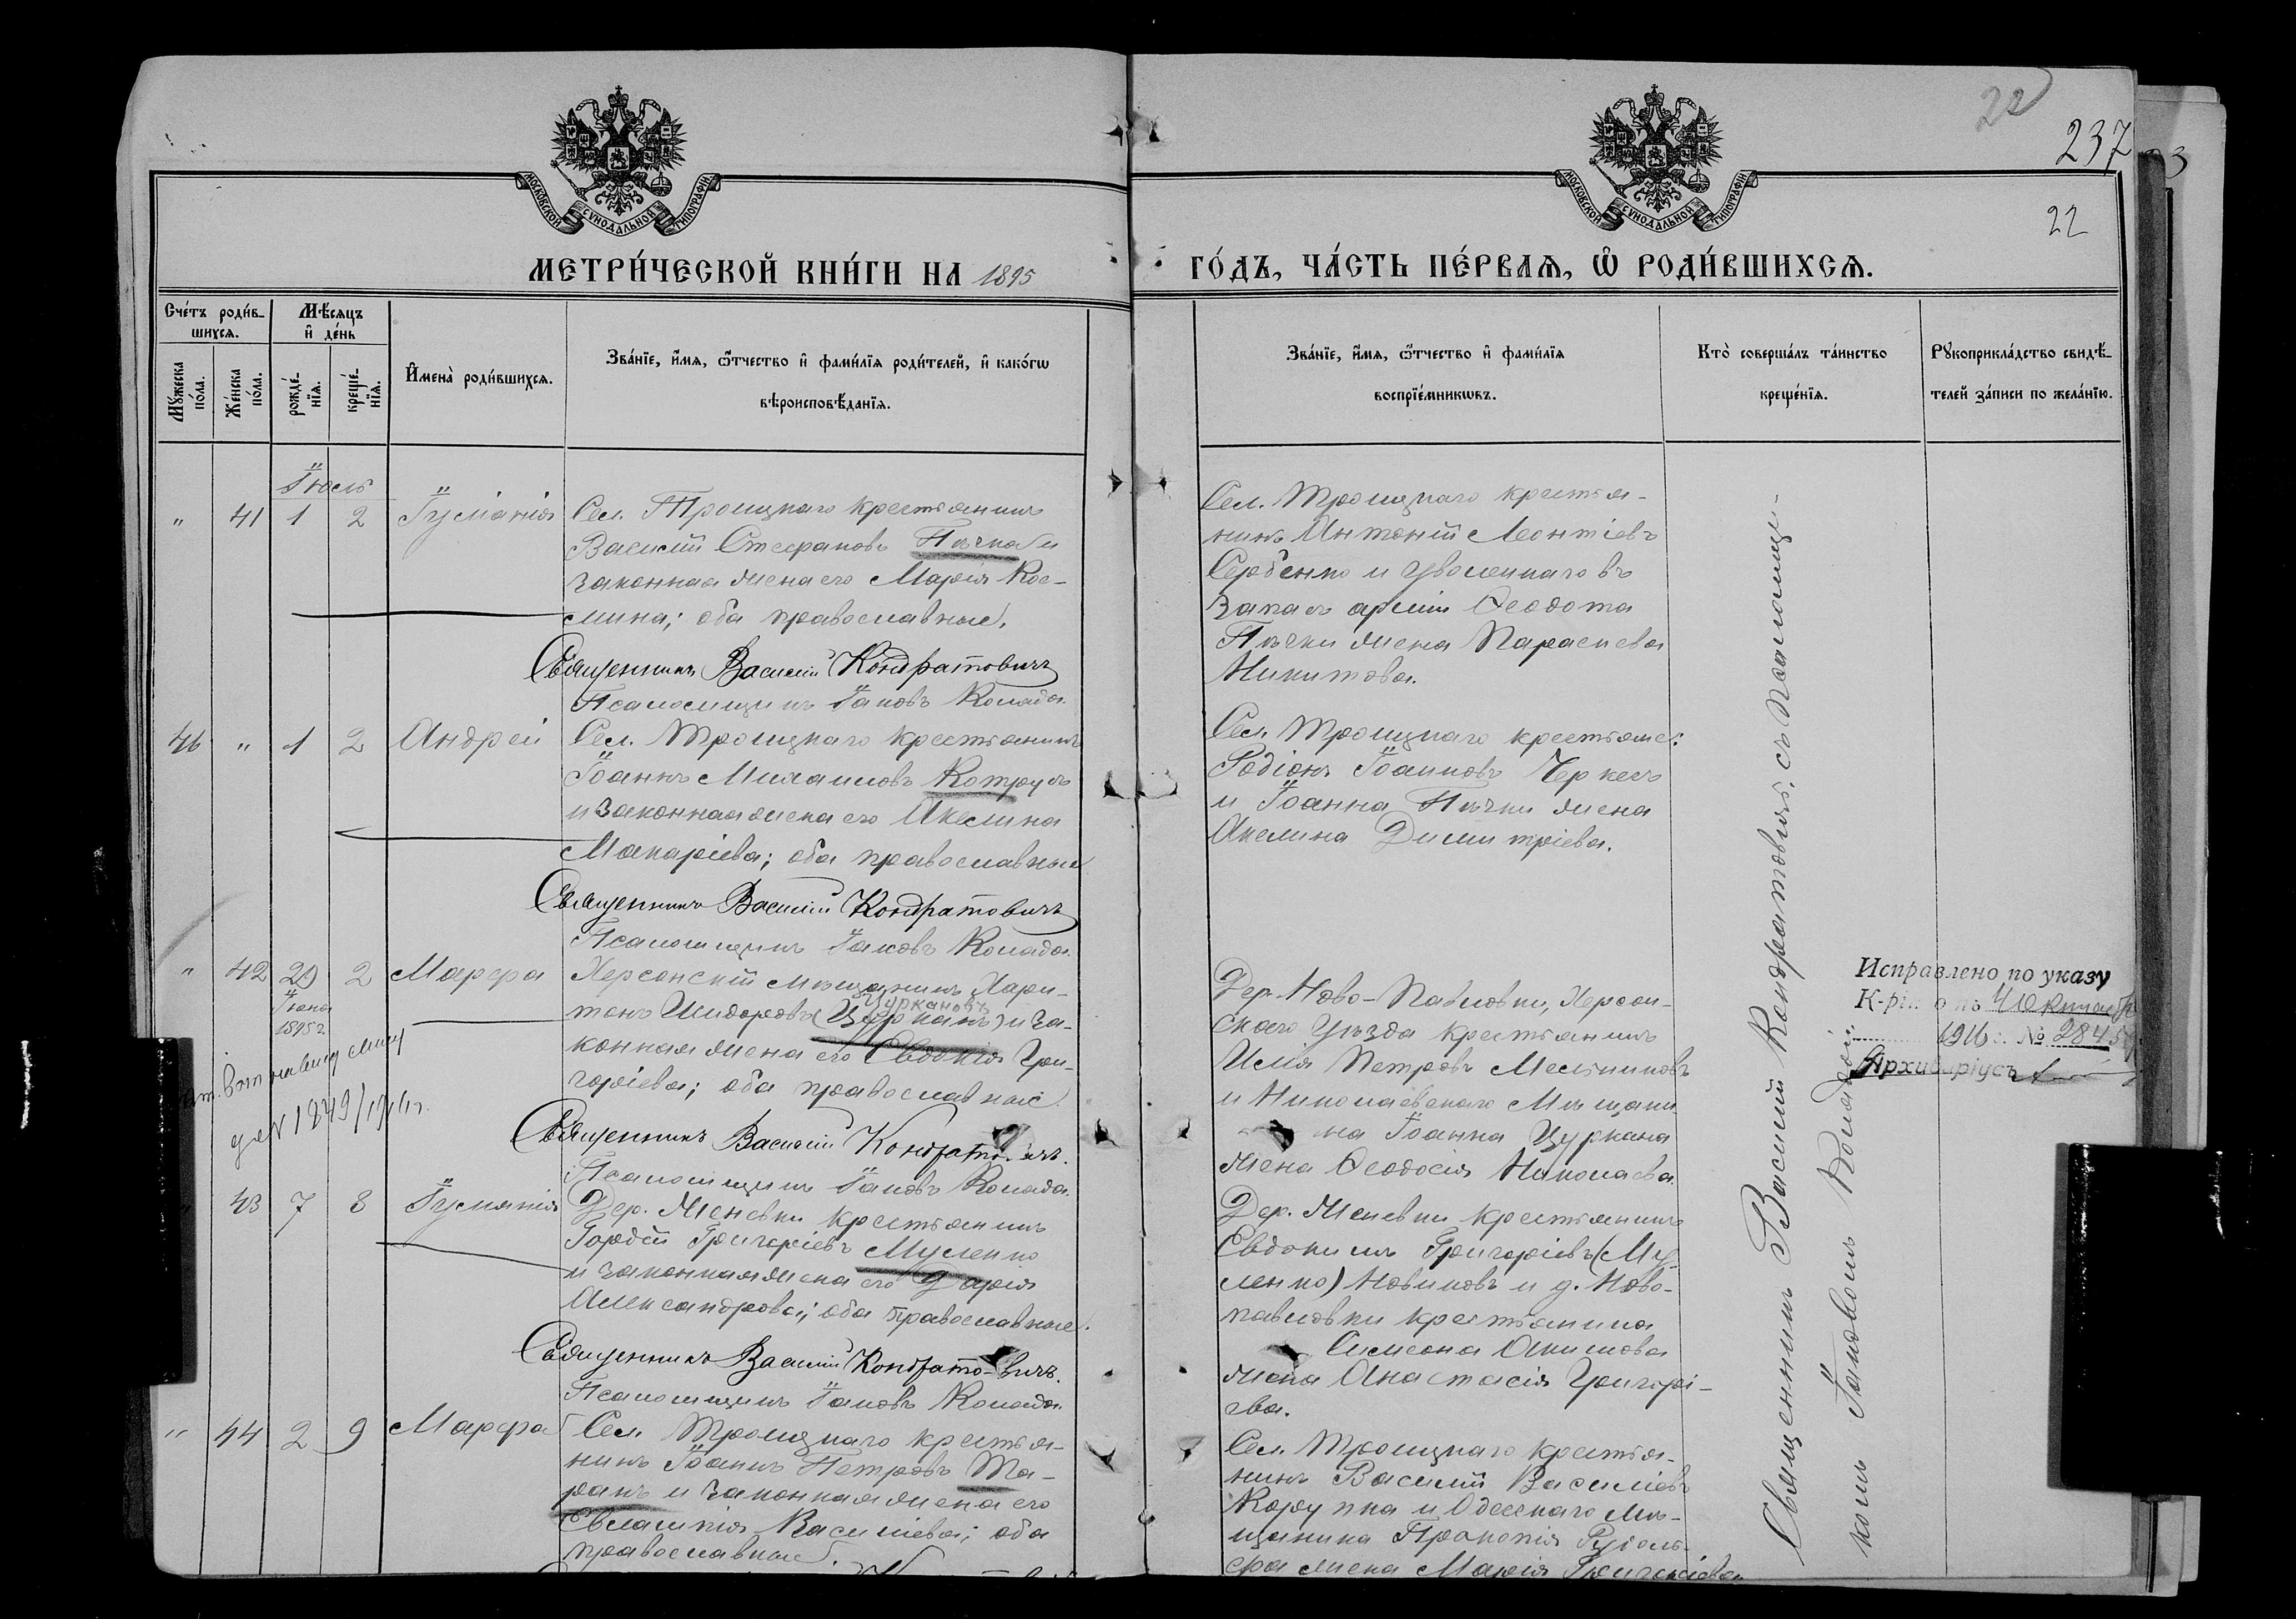 22
237
3
22
МОСКОВСКОЙ СѴНОДАЛЬНОЙ ТИПОГРАФІИ
МОСКОВСКОЙ СѴНОДАЛЬНОЙ ТИПОГРАФІИ
МЕТРИ́ЧЕСКОЙ КНИ́ГИ НА 1895
ГО́ДЪ, ЧА́СТЬ ПЕ́РВАѦ, Ѡ РОДИ́ВШИХСѦ.
Сче́тъ роди́в-
шихсѧ.
Мꙋ́жеска
по́ла.
Же́нска
по́ла.
Мѣ́сѧцъ
и҆ де́нь
рожде́-
нїѧ.
креще́-
нїѧ.
И҆мена̀ роди́вшихсѧ.
Зва́нїе, и҆́мѧ, ѻ҆́тчество и҆ фами́лїѧ роди́телей, и҆ како́гѡ
вѣроисповѣ́данїѧ.
Зва́нїе, и҆́мѧ, ѻ҆́тчество и҆ фами́лїѧ
воспрїе́мникѡвъ.
Кто̀ соверша́лъ та́инство
креще́нїѧ.
Рꙋкоприкла́дство свидѣ́-
телей за́писи по жела́нїю.
Іюль
" 41 1 2 Іуліанія
Сел. Троицкаго крестьянинъ
Василій Стефановъ Пѣчка и
законная жена его Марія Кос-
мина; оба православные.
Священникъ Василій Кондратовичъ
Псаломщикъ Іаковъ Колада.
Сел. Троицкаго крестья-
нинъ Антоній Леонтіевъ
Сербенко и уволеннаго въ
запасъ арміи Ѳеодота
Пѣчки жена Параскева
Никитова.
46 " 1 2 Андрей
Сел. Троицкаго крестьянинъ
Іоаннъ Михаиловъ Котрусъ
и законная жена его Акилина
Макаріева; оба православные
Священникъ Василій Кондратовичъ
Псаломщикъ Іаковъ Колада.
Сел. Троицкаго крестьяне:
Родіонъ Іоанновъ Черкесъ
и Іоанна Пѣчки жена
Акилина Димитріева.
" 42 29 2 Марѳа
Іюня
1895 г.
Херсонскій мѣщанинъ Хари-
Цуркановъ
тонъ Исидоровъ (Цурканъ) и за-
конная жена его Евдокія Гри-
горіева; оба православные.
Священникъ Василій Кондратовичъ.
Псаломщикъ Іаковъ Колада.
Дер. Ново-Павловки, Херсон-
скаго уѣзда крестьянинъ
Илія Петровъ Мельниковъ
и Николаевскаго мѣщани
на Іоанна Цуркана
жена Ѳеодосія Николаева.
Исправлено по указу
К-ріи отъ 4 Октяб
1916 г. № 2845
Архиваріусъ
1849/1916 г.
" 43 7 8 Іуліанія
Дер. Женевки крестьянинъ
Гордій Григоріевъ Мусенко
и законная жена его Дарія
Александрова; оба православные.
Священникъ Василій Кондратовичъ.
Псаломщикъ Іаковъ Колада.
Дер. Женевки крестьянинъ
Евдокимъ Григоріевъ (Му
сенко) Новиковъ и д. Ново-
павловки крестьянина
Симеона Акимова
жена Анастасія Григорі-
ева.
" 44 2 9 Марѳа
Сел. Троицкаго крестья-
нинъ Іоаннъ Петровъ Та-
ранъ и законная жена его
Евлампія Василіева; оба
православные.
Сел. Троицкаго крестья-
нинъ Василій Василіевъ
Корупка и Одесскаго мѣ-
щанина Прокопія
жена Марія Григоріева
Священникъ Василій Кондратовичъ съ псаломщи-
комъ Іаковомъ Коладой.